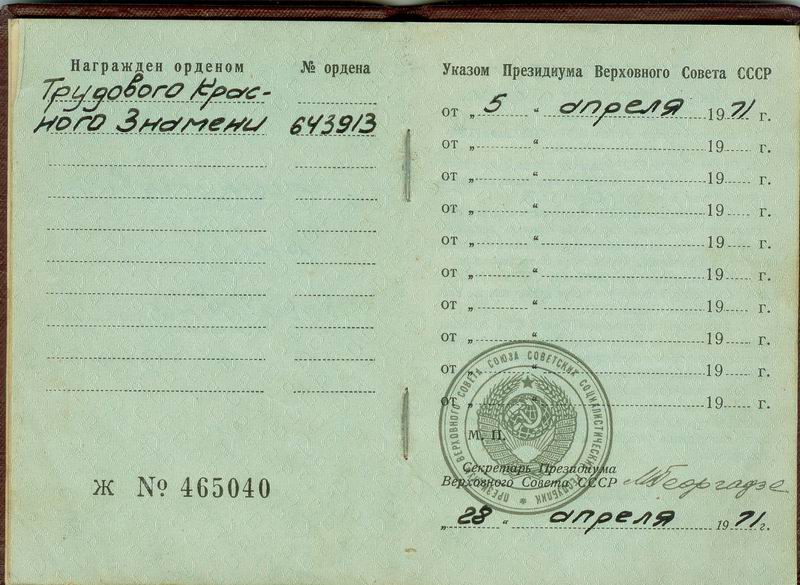 Награжден орденом
№ ордена
Трудового Крас-
ного Знамени
643913
Ж № 465040
Указом Президиума Верховного Совета СССР
от „ 5 “ апреля 1971 г.
от „ “ 19 г.
от „ “ 19 г.
от „ “ 19 г.
от „ “ 19 г.
от „ “ 19 г.
от „ “ 19 г.
от „ “ 19 г.
от „ “ 19 г.
от „ “ 19 г.
ПРЕЗИДИУМ ВЕРХОВНОГО СОВЕТА СОЮЗА СОВЕТСКИХ СОЦИАЛИСТИЧЕСКИХ РЕСПУБЛИК
М. П.
Секретарь Президиума
Верховного Совета СССР
МГеоргадзе
„ 28 “ апреля 1971 г.